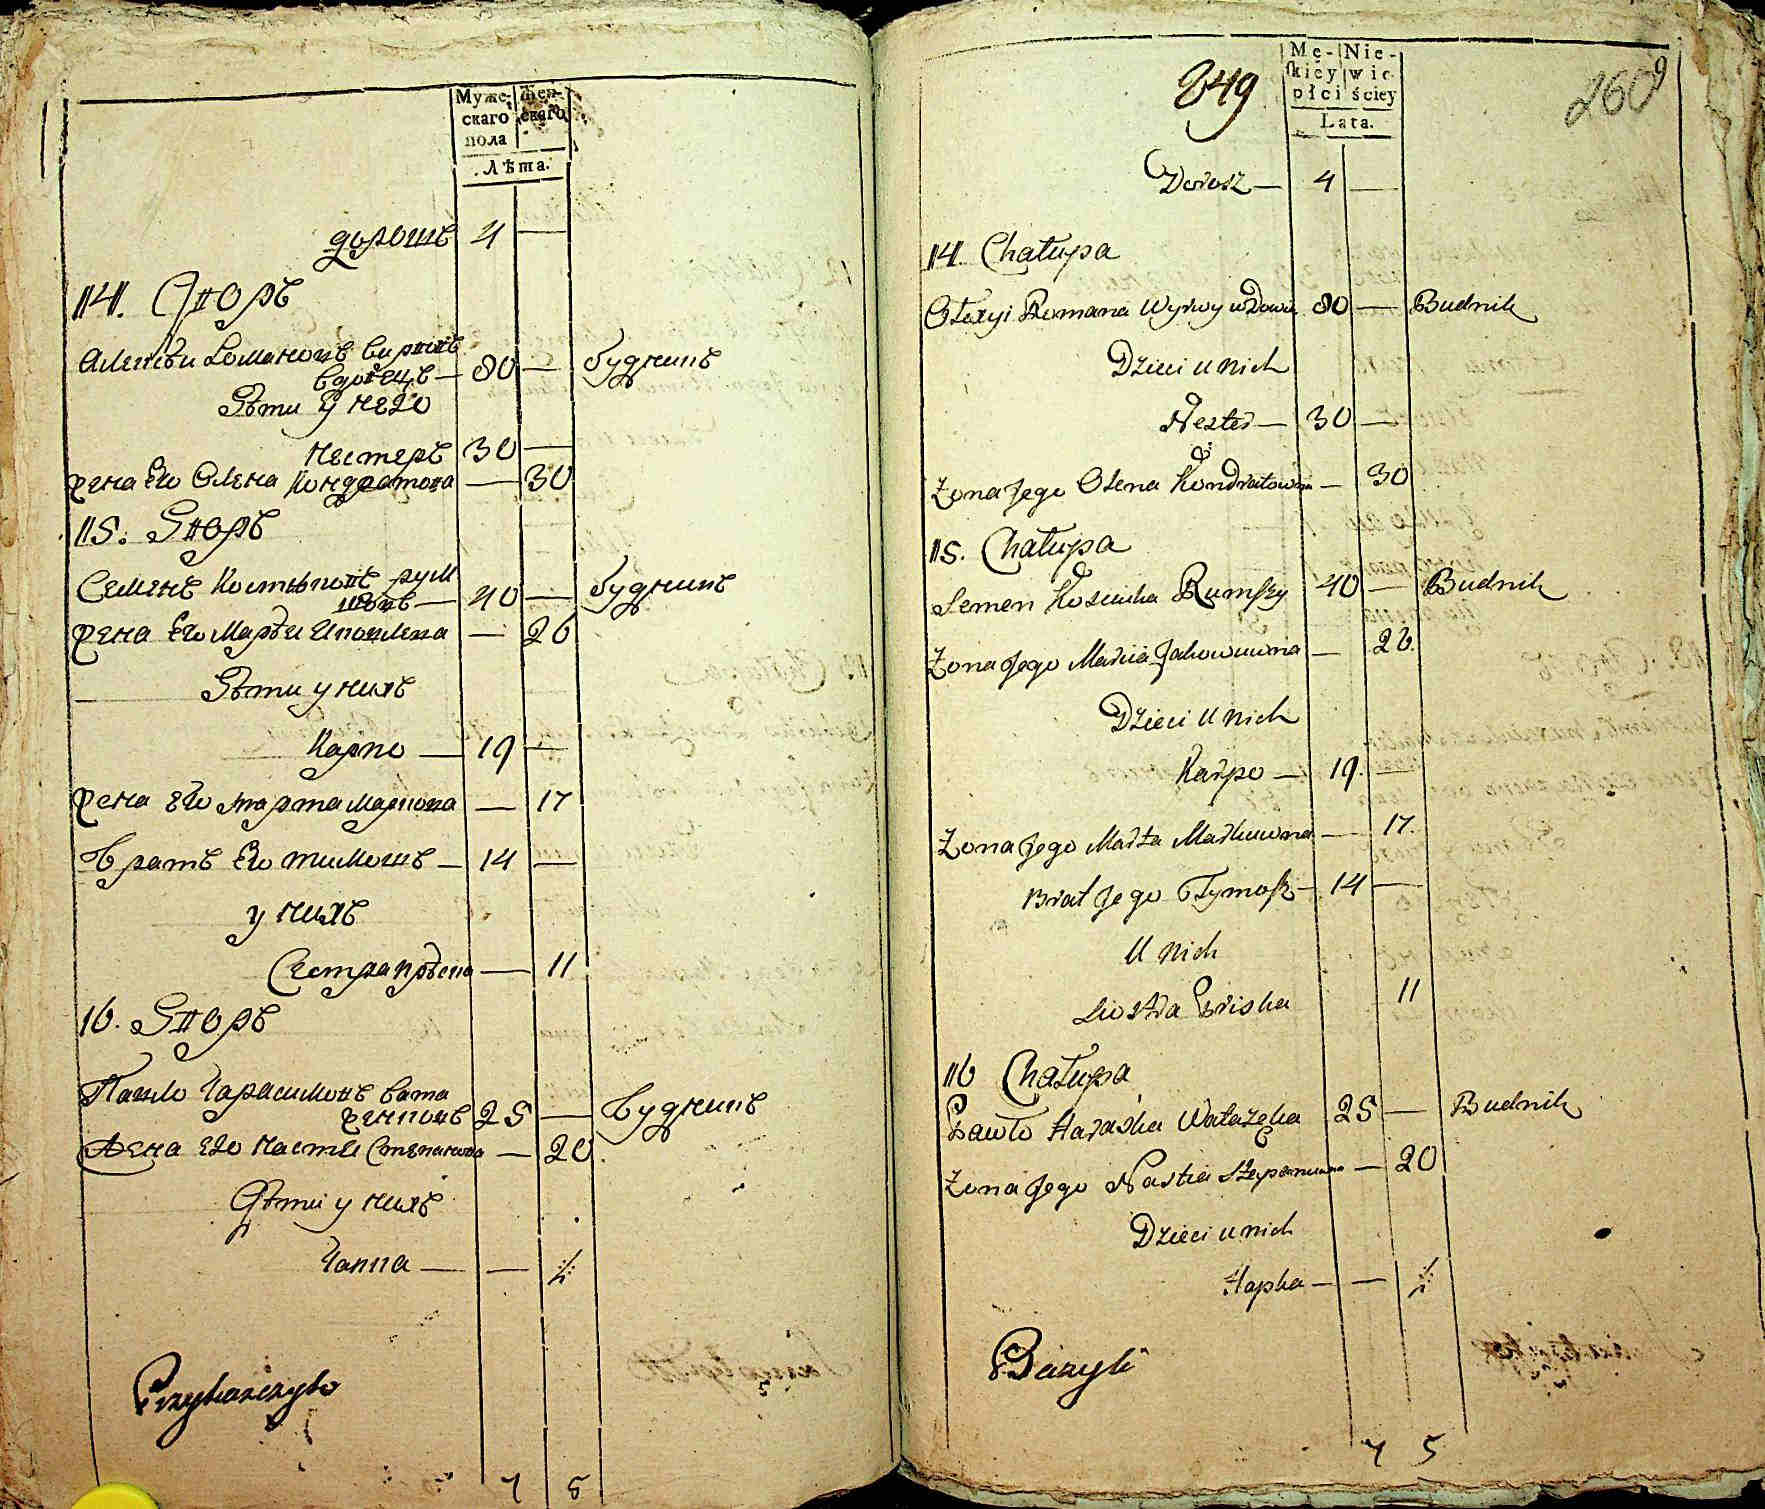 Муже-
скаго
пола
Жен-
скаго
Лѣта.
дорошъ 4 —
114. Дворъ
Алексѣи Романовъ
вдовецъ — 80 — будникъ
Дѣти у него
Нестеръ 30 —
жена Его Олена Кондратова — 30
115. Дворъ
Семенъ рум
40 — будникъ
жена Его Марья — 26
Дѣти у нихъ
Карпо — 19 —
жена Его Марта Маркова — 17
братъ Его тимошъ — 14 —
у нихъ
Сестра — 11
116. Дворъ
Павло Гарасимовъ вата
женковъ 25 — будникъ
Жена Его Настя Степанова — 20
Дѣти у нихъ
Гапка — — ½
7 5
249
260
Mę-
skiey
płci
Nie-
wie-
ściey
Lata.
Dorosz — 4 —
114. Chałupa
Romana Wyrwy wdowiec 80 — Budnik
Dzieci u nich
Nester — 30 —
Żona Jego Olena Kondratowna — 30
115. Chałupa
Semen Rumszy 40 — Budnik
Żona Jego Maria Jakowuwna — 26.
Dzieci u nich
Karpo — 19. —
Żona Jego Marta Markuwna — 17.
Brat Jego Tymosz — 14 —
U nich
Siostra Priska 11
116 Chałupa
Pawło Haraska Watażka 25 — Budnik
Żona Jego Nastia Stepanuwna — 20
Dzieci u nich
Hapka — — ½
7 5